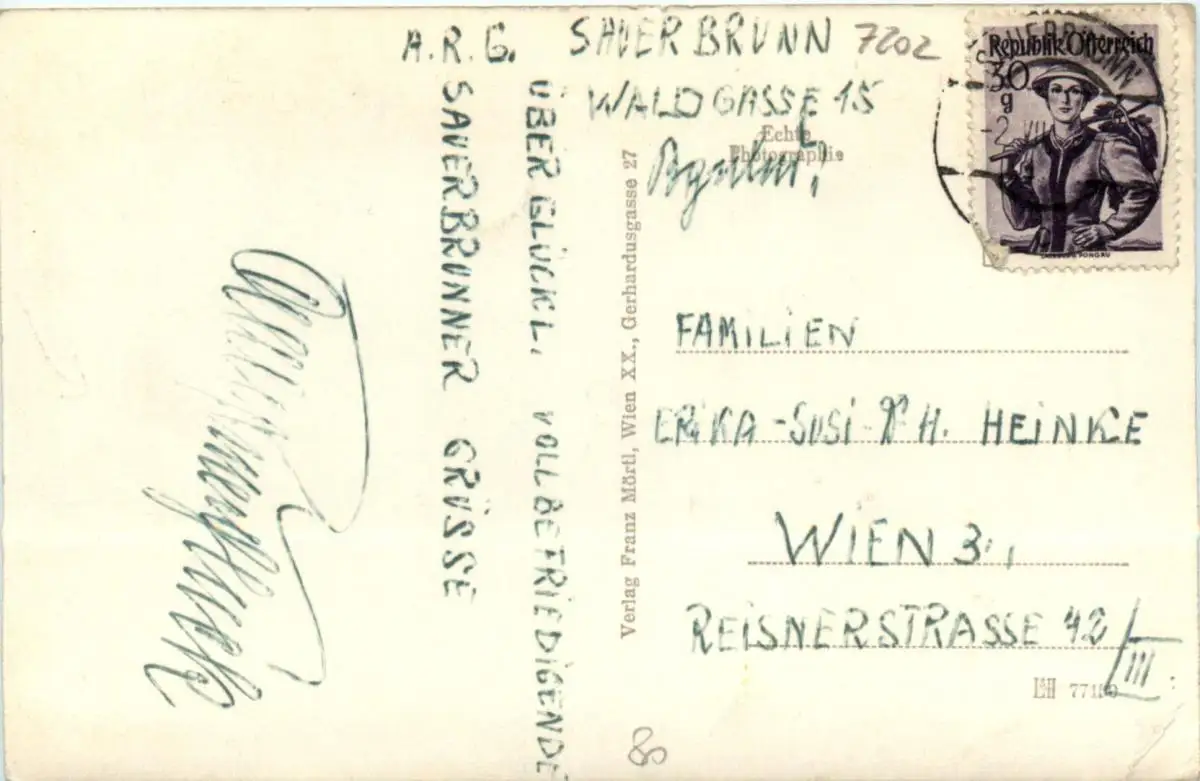 A.R.G.
SAUERBRUNN 7202
WALDGASSE 15
ÜBERGLÜCKL. VOLLBEFRIEDIGENDE
SAUERBRUNNER GRÜSSE
Echte
Photographie
Verlag Franz Mörtl, Wien XX., Gerhardusgasse 27
SAUERBRUNN
-2. VII
Republik Österreich
30
g
SALZBURG PONGAU
FAMILIEN
ERIKA-SUSI- H. HEINKE
WIEN 3.,
REISNERSTRASSE 42/III
80